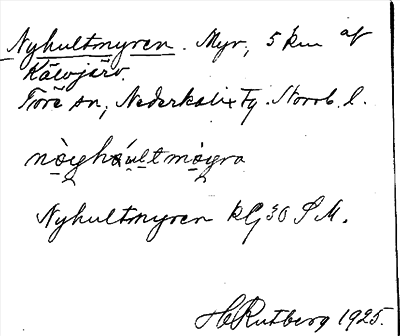 Nyhultmyren. Myr, 5 km af
Kälvjärv.
Töre sn, Nederkalix Tg. Norrb. l.
Nyhultmyren kG, 30 S M.
H Rutberg 1925.